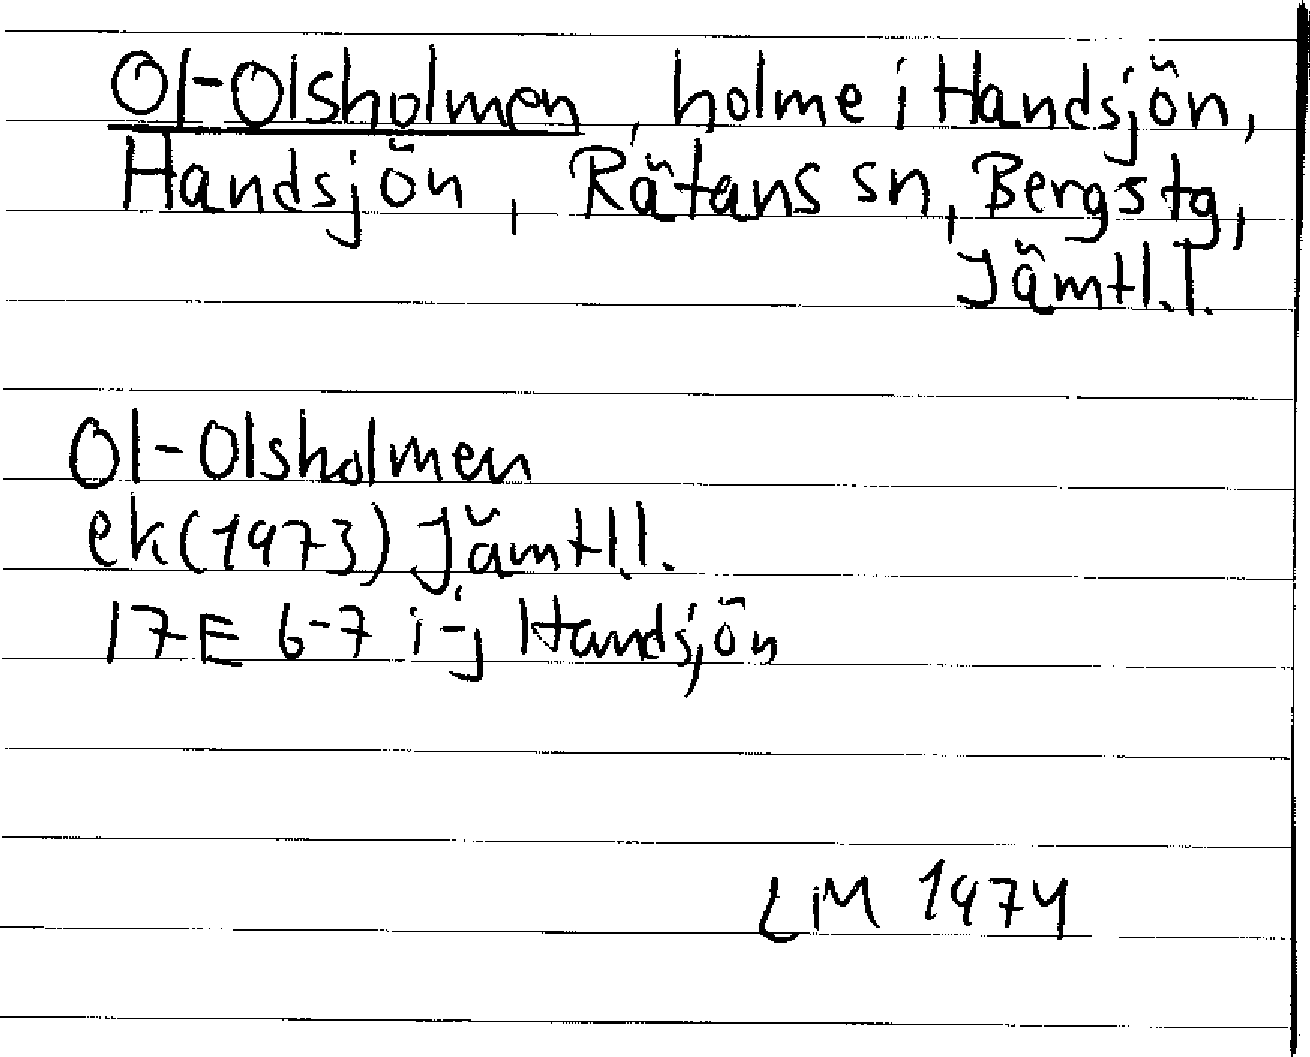 Ol-Olsholmen, holme i Handsjön,
Handsjön, Rätans sn, Bergs tg,
Jämtl.l.
Ol-Olsholmen
ek (1973) Jämtl.l.
17E 6-7 i-j Handsjön
LM 1974